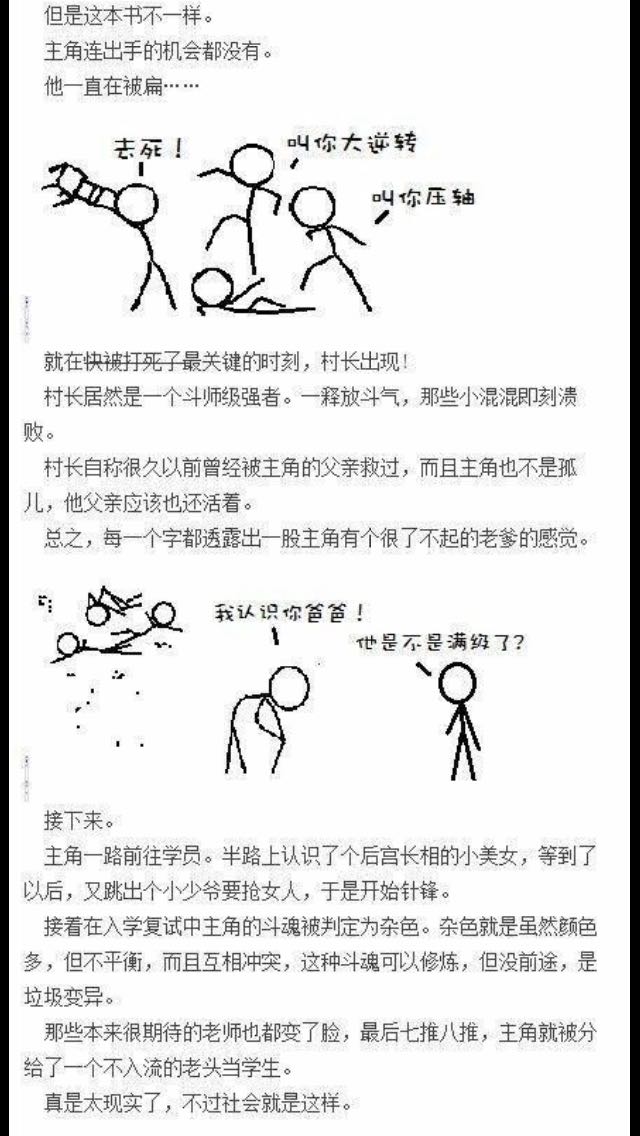 但是这本书不一样。
主角连出手的机会都没有。
他一直在被扁……
去死！
叫你大逆转
叫你压轴
就在快被打死了最关键的时刻，村长出现！
村长居然是一个斗师级强者。一释放斗气，那些小混混即刻溃
败。
村长自称很久以前曾经被主角的父亲救过，而且主角也不是孤
儿，他父亲应该也还活着。
总之，每一个字都透露出一股主角有个很了不起的老爹的感觉。
我认识你爸爸！
他是不是满级了？
接下来。
主角一路前往学员。半路上认识了个后宫长相的小美女，等到了
以后，又跳出个小少爷要抢女人，于是开始针锋。
接着在入学复试中主角的斗魂被判定为杂色。杂色就是虽然颜色
多，但不平衡，而且互相冲突，这种斗魂可以修炼，但没前途，是
垃圾变异。
那些本来很期待的老师也都变了脸，最后七推八推，主角就被分
给了一个不入流的老头当学生。
真是太现实了，不过社会就是这样。